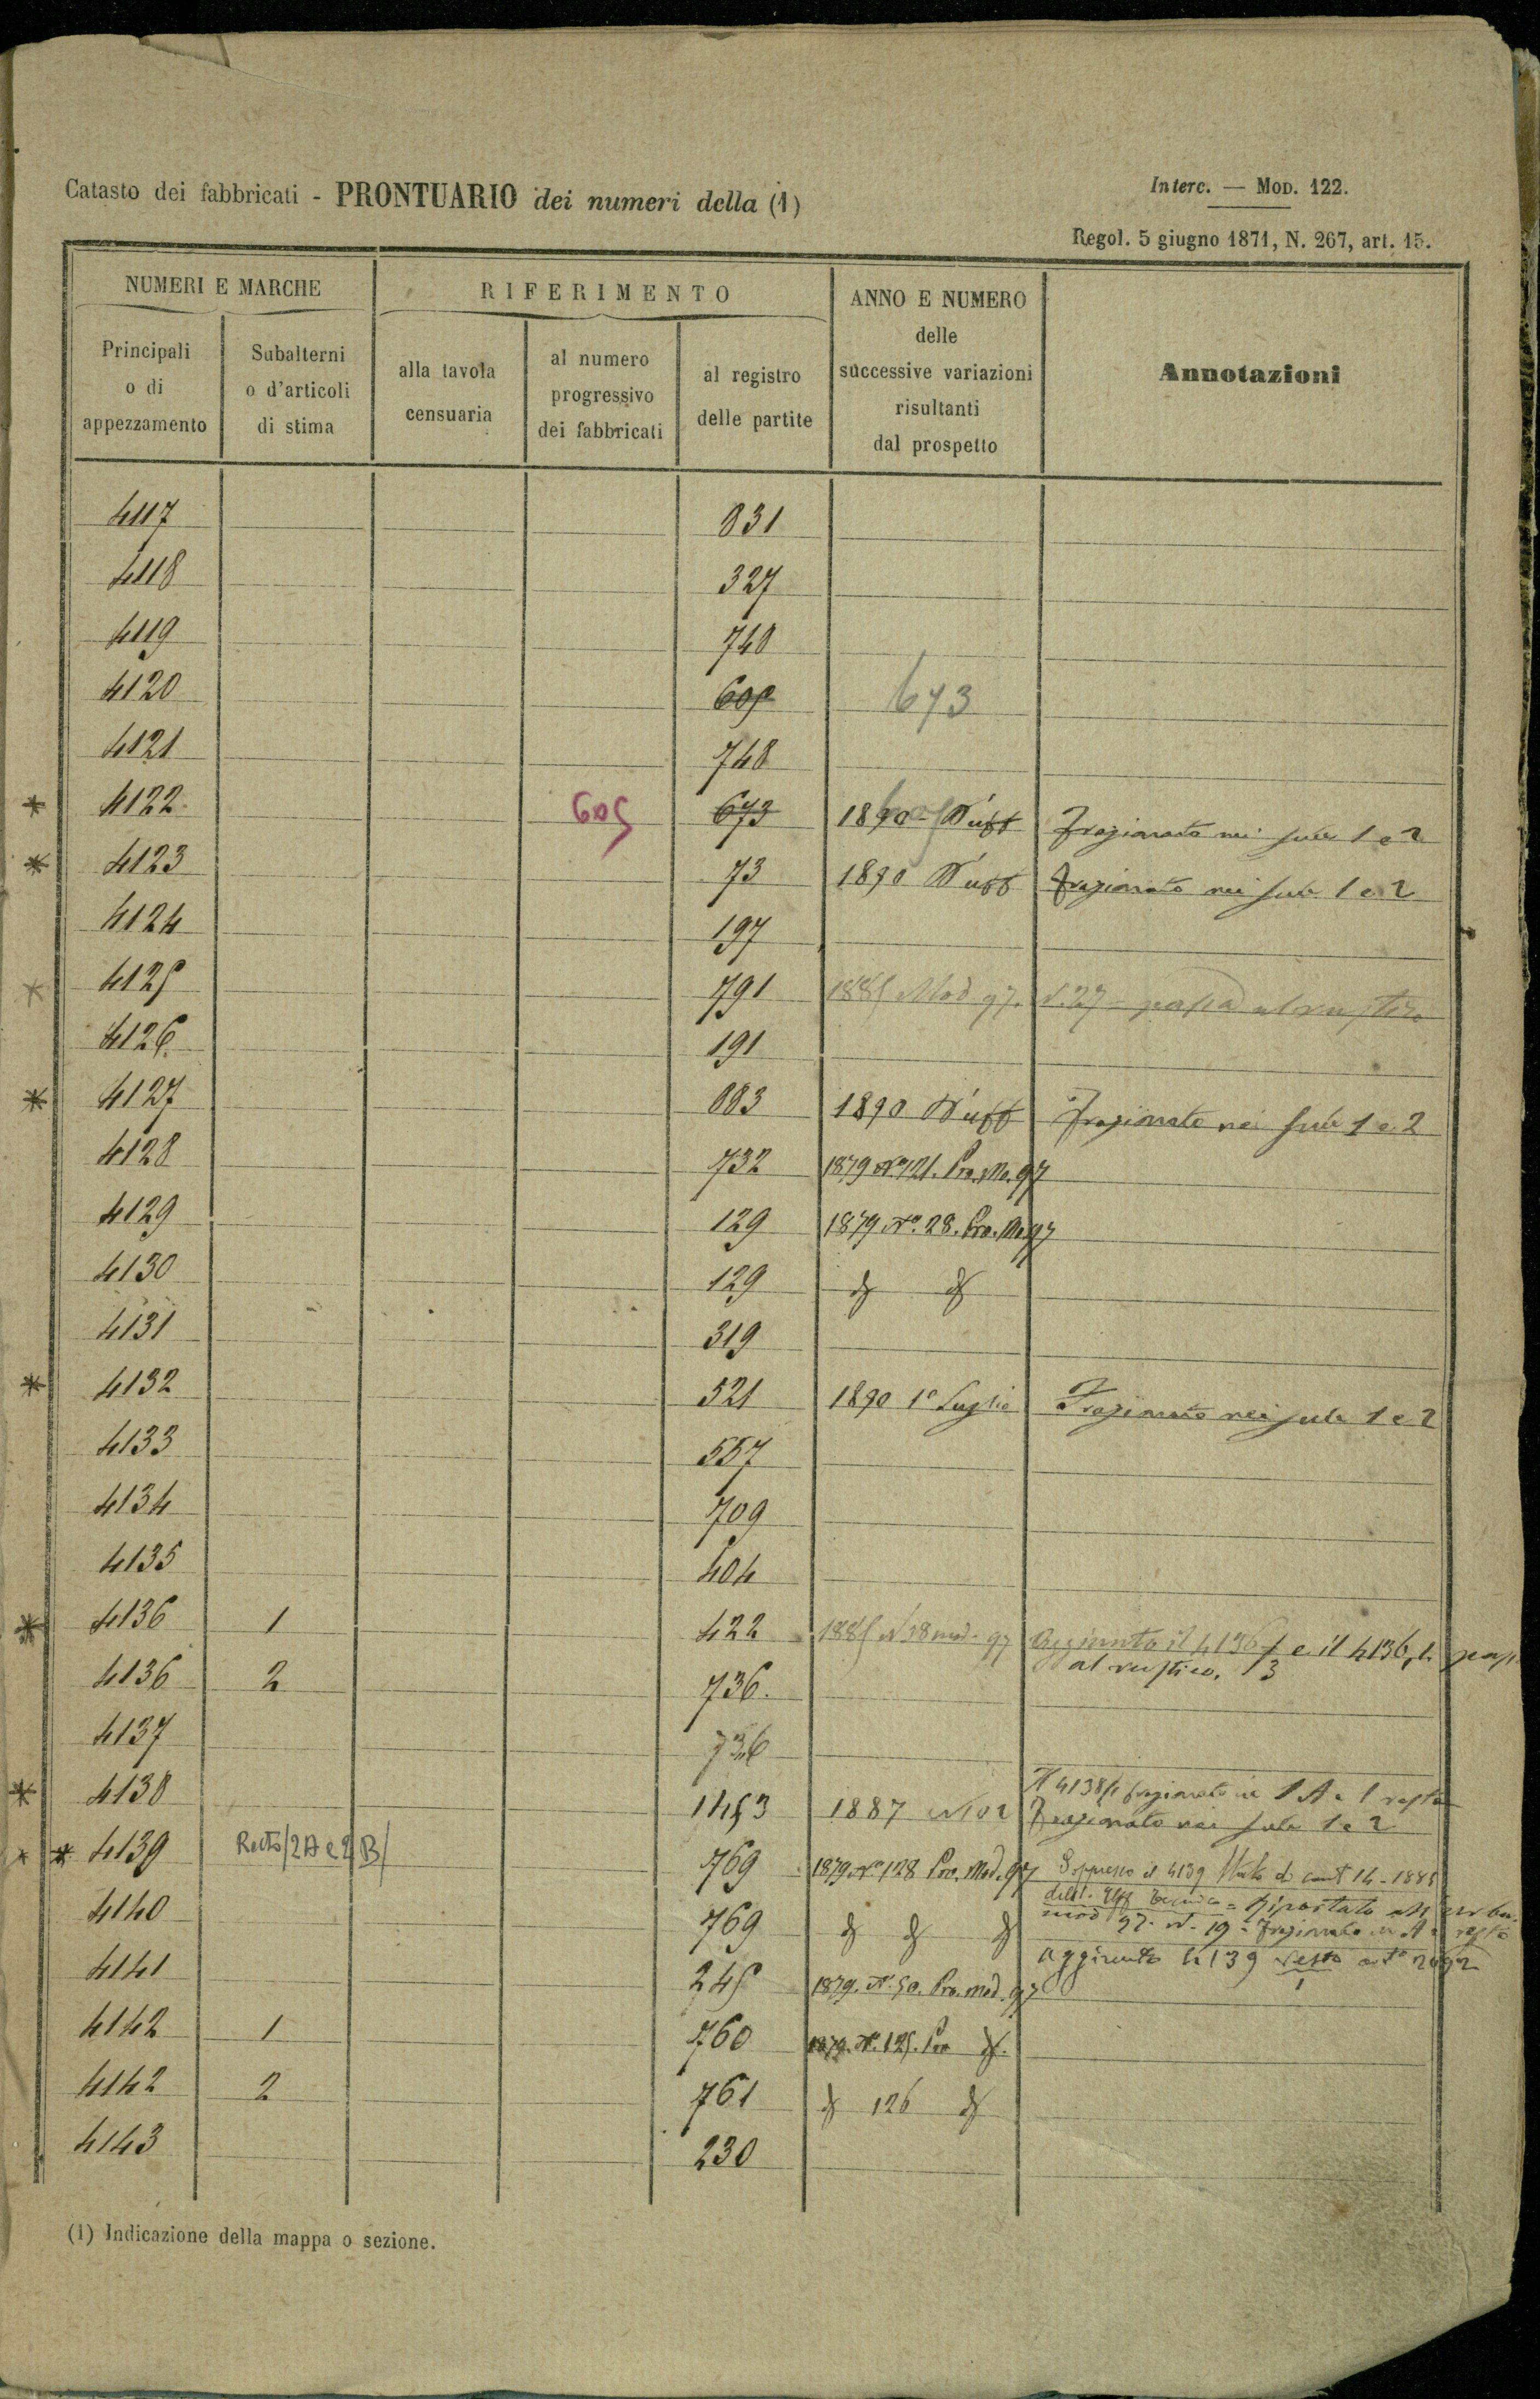 Catasto dei fabbricati - PRONTUARIO dei numeri della (1)
Interc. — MOD. 122.
Regol. 5 giugno 1871, N. 267, art. 15.
NUMERI E MARCHE
RIFERIMENTO
ANNO E NUMERO
delle
successive variazioni
risultanti
dal prospetto
Annotazioni
Principali
o di
appezzamento
Subalterni
o d'articoli
di stima
alla tavola
censuaria
al numero
progressivo
dei fabbricati
al registro
delle partite
4117 831
4118 327
4119 740
4120 605 673
4121 748
* 4122 605 673 1890 Frazionato nei sub 1 e 2
* 4123 73 1890 frazionato nei sub 1 e 2
4124 197
* 4125 791 1885 Mod 97. N. 27 - passa al rustico
4126 191
* 4127 883 1890 Frazionato nei sub 1 e 2
4128 732 1879 No 121. Pro. Mo. 97
4129 129 1879 No. 28. Pro. Mo 97
4130 129 d d
4131 319
* 4132 521 1890 1o Luglio Frazionato nei sub 1 e 2
4133 557
4134 709
4135 404
* 4136 1 422 1885 N 38 mod. 97 Aggiunto il 4136 e il 4136
al rustico. 3
4136 2 736.
4137 736
Il 4138/1 frazionato in 1 A e 1 resta
* 4138 1453 1887 N 102 Frazionato nei sub 1 e 2
* * 4139 Resto/2A e 2B/ 769 1879 No 128 Pro. Mod. 97 Soppresso il 4139 14 - 1885
dell. Uff Tecnico = Riportato
4140 769 d d d mod 97. N. 19 - Frazionato in A e resto
aggiunto 4139 resto
1
4141 245 1879. N. 50. Pro. mod. 97
4142 1 760 1879. N. 125. Pro d.
4142 2 761 d 126 d
4143 230
(1) Indicazione della mappa o sezione.